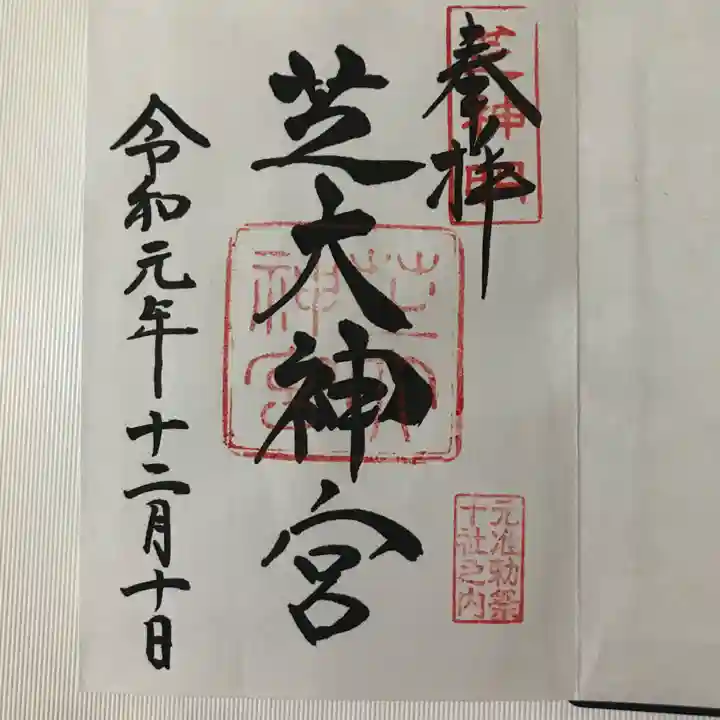 奉拝
芝神明
芝大神宮
芝大神宮
元准勅祭
十社之内
令和元年十二月十日